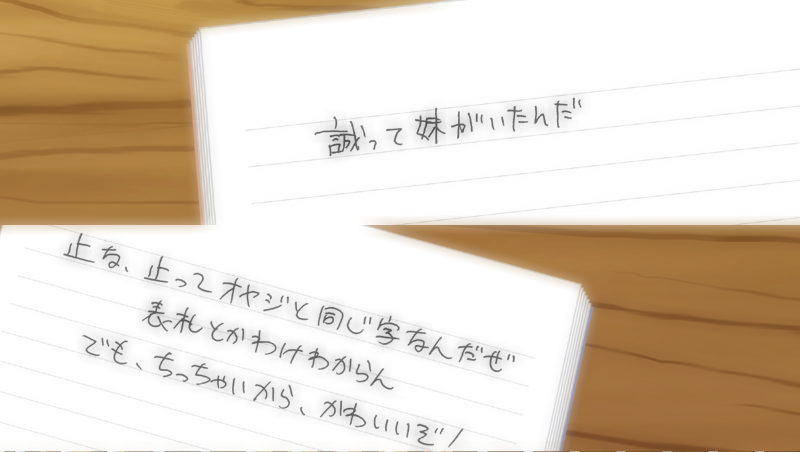 誠って妹がいたんだ
止な、止ってオヤジと同じ字なんだぜ
表札とかわけわからん
でも、ちっちゃいから、かわいいぞ!